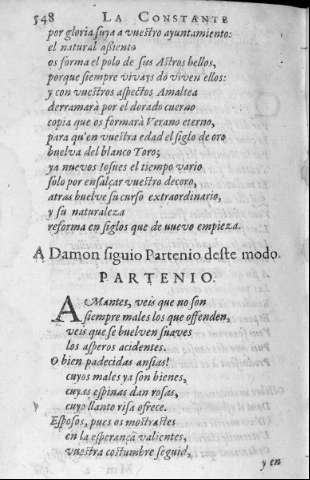 548 LA CONSTANTE
por gloria suya a vuestro ayuntamiento:
el natural assiento
os forma el polo de sus Astros bellos,
porque siempre vivays do viven ellos:
y con vuestros aspectos Amaltea
derramarà por el dorado cuerno
copia que os formarà Verano eterno,
para qu'en vuestra edad el siglo de oro
buelva del blanco Toro;
ya nuevos Iosues el tiempo vario
solo por ensalçar vuestro decoro,
atras buelve su curso extraordinario,
y su naturaleza
reforma en siglos que de nuevo empieza.
A Damon siguio Partenio deste modo.
PARTENIO.
AMANTES, veis que no son
siempre males los que offenden,
veis que se buelven suaves
los asperos acidentes.
O bien padecidas ansias!
cuyos males ya son bienes,
cuyas espinas dan rosas,
cuyo llanto risa ofrece.
Esposos, pues os mostrastes
en la esperança valientes,
vuestra costumbre seguid,
y en